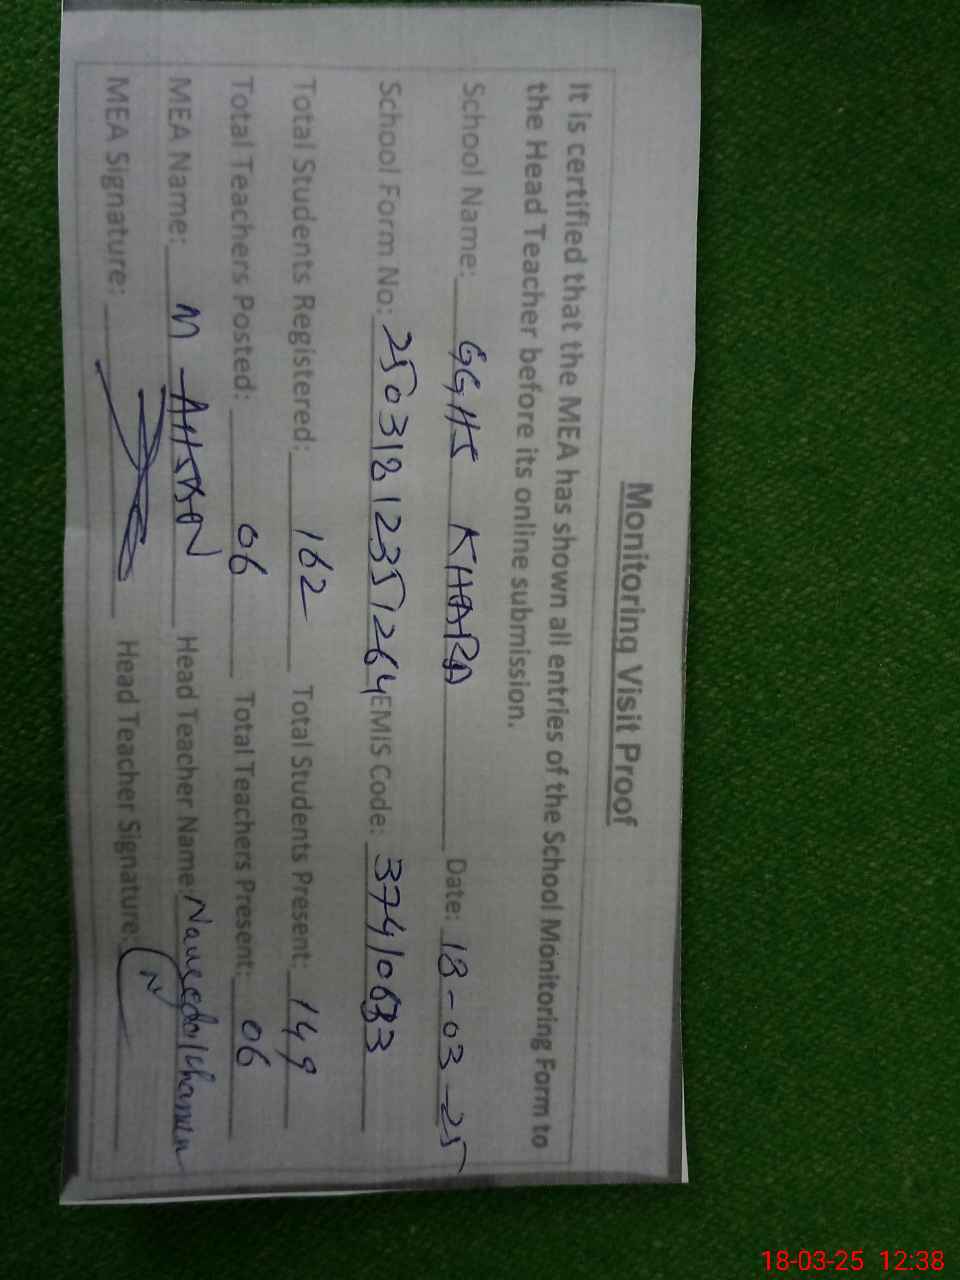 Monitoring Visit Proof
It is certified that the MEA has shown all entries of the School Monitoring Form to
the Head Teacher before its online submission.
School Name: GGHS KHARA Date: 18-03-25
School Form No: 250318123571264 EMIS Code: 37410633
Total Students Registered: 162 Total Students Present: 149
Total Teachers Posted: 06 Total Teachers Present: 06
MEA Name: M AHSAN Head Teacher Name: Naveeda
MEA Signature: Head Teacher Signature:
18-03-25 12:38